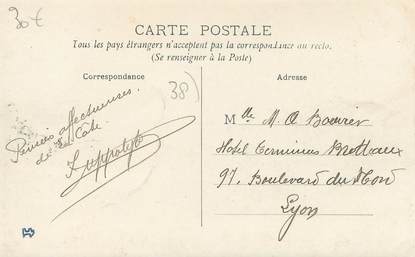 30€
CARTE POSTALE
Tous les pays étrangers n'acceptent pas la correspondance au recto.
(Se renseigner à la Poste)
Correspondance
Adresse
38)
Pensées affectueuses
de la Côte
Hippolyte
Mlle M. A Bouvier
Hotel Terminus Brotteaux
97. Boulevard du Nord
Lyon